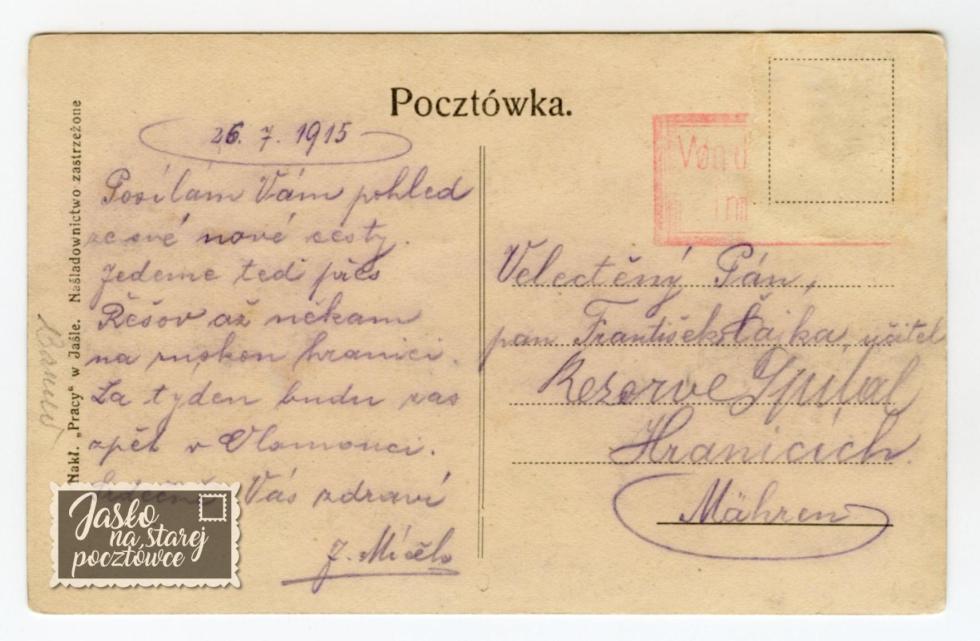 Pocztówka.
Nakł. „Pracy" w Jaśle. Naśladownictwo zastrzeżone
26. 7. 1915
Posílám Vám pohled
ze své nové cesty.
Jedeme teď přes
Řešov až někam
na ruskou hranici.
Za týden budu zas
zpět v Olomouci.
Vás zdraví
J.
Von
Velectěný Pán,
pan František Čajka, učitel
Reserve Spital
Hranicích
Mähren
Jasło
na starej
pocztówce